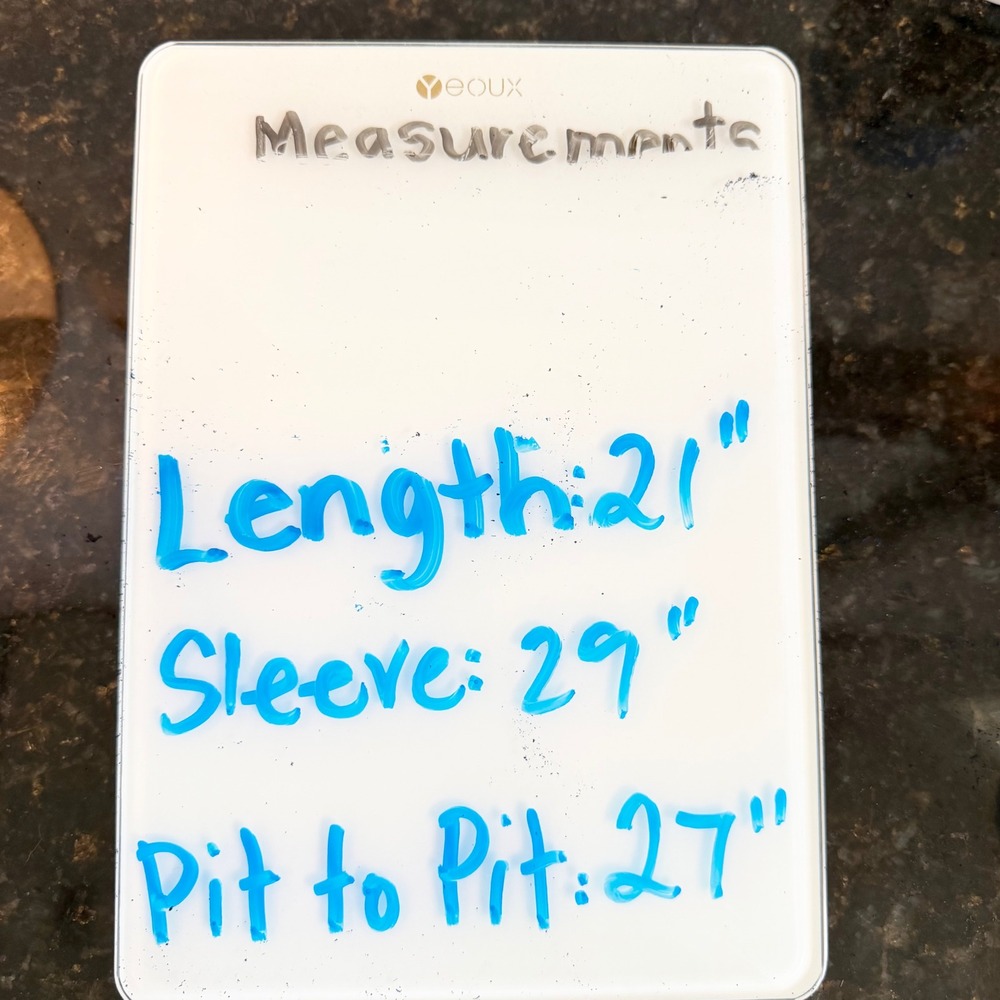 Yeoux
Measurements
Length: 21"
Sleeve: 29"
Pit to Pit: 27"